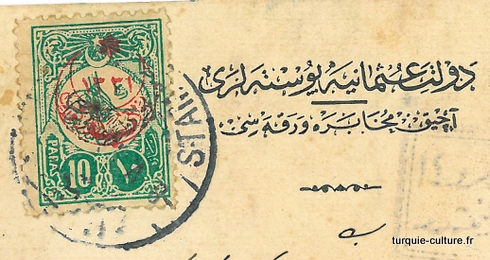 دولت عثمانیه پوسته لری
آچیق مخابره ورقه سی
١٣٣١
PARAS
10 ١٠
STAN
turquie-culture.fr